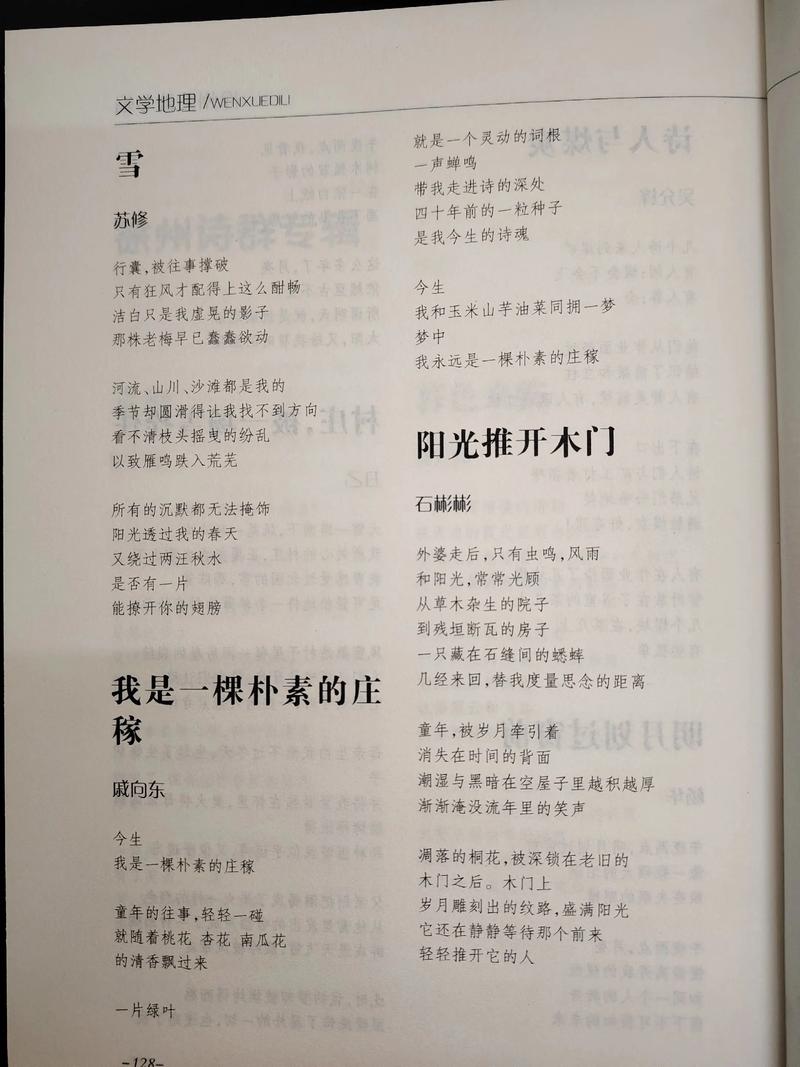 文学地理 /WENXUEDILI
雪
苏修
行囊,被往事撑破
只有狂风才配得上这么酣畅
洁白只是我虚晃的影子
那株老梅早已蠢蠢欲动
河流、山川、沙滩都是我的
季节却圆滑得让我找不到方向
看不清枝头摇曳的纷乱
以致雁鸣跌入荒芜
所有的沉默都无法掩饰
阳光透过我的春天
又绕过两汪秋水
是否有一片
能撩开你的翅膀
我是一棵朴素的庄
稼
戚向东
今生
我是一棵朴素的庄稼
童年的往事,轻轻一碰
就随着桃花 杏花 南瓜花
的清香飘过来
一片绿叶
就是一个灵动的词根
一声蝉鸣
带我走进诗的深处
四十年前的一粒种子
是我今生的诗魂
今生
我和玉米山芋油菜同拥一梦
梦中
我永远是一棵朴素的庄稼
阳光推开木门
石彬彬
外婆走后,只有虫鸣,风雨
和阳光,常常光顾
从草木杂生的院子
到残垣断瓦的房子
一只藏在石缝间的蟋蟀
几经来回,替我度量思念的距离
童年,被岁月牵引着
消失在时间的背面
潮湿与黑暗在空屋子里越积越厚
渐渐淹没流年里的笑声
凋落的桐花,被深锁在老旧的
木门之后。木门上
岁月雕刻出的纹路,盛满阳光
它还在静静等待那个前来
轻轻推开它的人
-128-